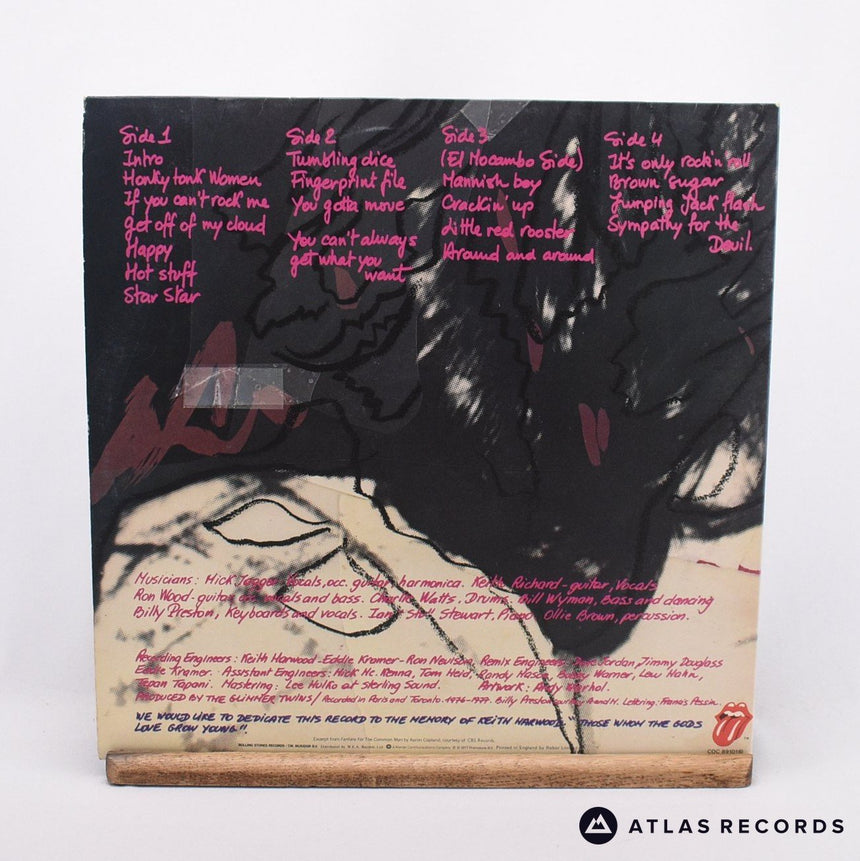 Side 1
Intro
Honky tonk Women
If you can't rock me
get off of my cloud
Happy
Hot stuff
Star Star
Side 2
Tumbling dice
Fingerprint file
You gotta move
You can't always
get what you
want
Side 3
(El Mocambo Side)
Mannish boy
Crackin' up
Little red rooster
Around and around
Side 4
It's only rock'n roll
Brown sugar
Jumping Jack flash
Sympathy for the
Devil.
Musicians: Mick Jagger Vocals, occ. guitar, harmonica. Keith Richard - guitar, Vocals
Ron Wood - guitar occ. vocals and bass. Charlie Watts. Drums. Bill Wyman, Bass and dancing
Billy Preston, Keyboards and vocals. Ian 'Stu' Stewart, Piano Ollie Brown, percussion.
Recording Engineers: Keith Harwood - Eddie Kramer - Ron Nevison, Remix Engineers: Dave Jordan, Jimmy Douglass
Eddie Kramer. Assistant Engineers: Mick Mc. Kenna, Tom Heid, Randy Mason, Bobby Warner, Lew Hahn,
Tapani Tapani. Mastering: Lee Hulko at Sterling Sound. Artwork: Andy Warhol.
PRODUCED BY THE GLIMMER TWINS/ Recorded in Paris and Toronto. 1976-1977. Billy Preston courtesy A and M. Lettering: Francis Pessin.
WE WOULD LIKE TO DEDICATE THIS RECORD TO THE MEMORY OF KEITH HARWOOD "THOSE WHOM THE GODS
LOVE GROW YOUNG".
Excerpt from Fanfare For The Common Man by Aaron Copland, courtesy of CBS Records.
COC 89101(6)
ATLAS RECORDS